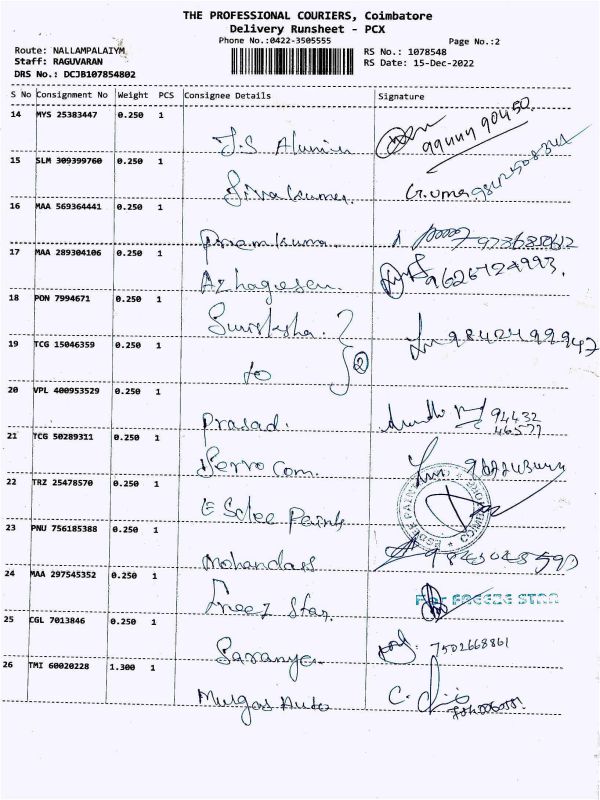 THE PROFESSIONAL COURIERS, Coimbatore
Delivery Runsheet - PCX
Phone No.:0422-3505555
Page No.:2
Route: NALLAMPALAIYM
Staff: RAGUVARAN
DRS No.: DCJB107854802
RS No.: 1078548
RS Date: 15-Dec-2022
S No Consignment No Weight PCS Consignee Details Signature
14 MYS 25383447 0.250 1
J.S 99444 90450
15 SLM 309399760 0.250 1
Sivakumar G.uma
16 MAA 569364441 0.250 1
Premkumar
17 MAA 289304106 0.250 1
Azhagesan 9626724993.
18 PON 7994671 0.250 1
19 TCG 15046359 0.250 1
to 2
20 VPL 400953529 0.250 1
Prasad. 94432
46577
21 TCG 50289311 0.250 1
Servo Com.
22 TRZ 25478570 0.250 1
Paints
23 PNU 756185388 0.250 1
Mohandass
24 MAA 297545352 0.250 1
Freez Star For FREEZE STAR
25 CGL 7013846 0.250 1
Saranya 7502668861
26 TMI 60020228 1.300 1
Murgas Auto C.